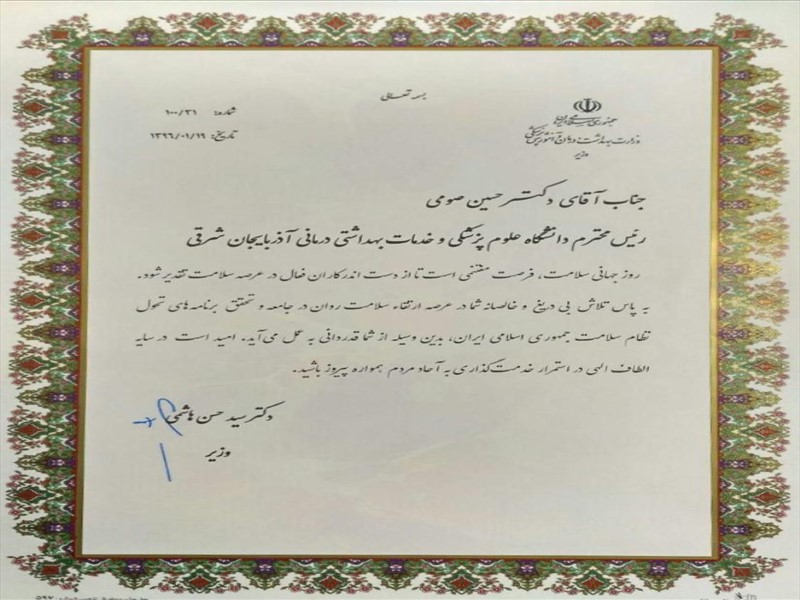 بسمه تعالی
جمهوری اسلامی ایران
وزارت بهداشت، درمان و آموزش پزشکی
وزیر
شماره: ۱۰۰/۳۱
تاریخ: ۱۳۹۶/۰۱/۱۹
جناب آقای دکتر حسین صومی
رئیس محترم دانشگاه علوم پزشکی و خدمات بهداشتی درمانی آذربایجان شرقی
روز جهانی سلامت، فرصت مغتنمی است تا از دست اندرکاران فعال در عرصه سلامت تقدیر شود.
به پاس تلاش بی دریغ و خالصانه شما در عرصه ارتقاء سلامت روان در جامعه و تحقق برنامه‌های تحول
نظام سلامت جمهوری اسلامی ایران، بدین وسیله از شما قدردانی به عمل می‌آید. امید است در سایه
الطاف الهی در استمرار خدمت‌گذاری به آحاد مردم همواره پیروز باشید.
دکتر سید حسن هاشمی
وزیر